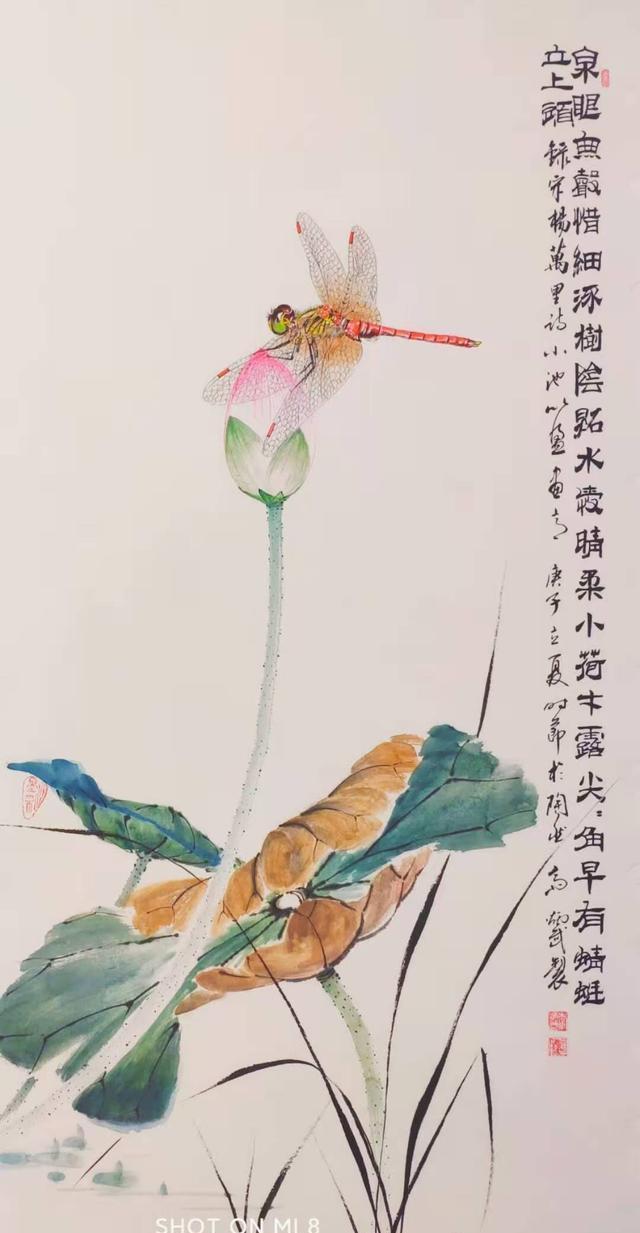 泉眼無聲惜細流樹陰照水愛晴柔小荷才露尖〻角早有蜻蜓
立上頭 錄宋楊萬里詩小池以 畫 庚子立夏時節於陶 高 武製
SHOT ON MI 8